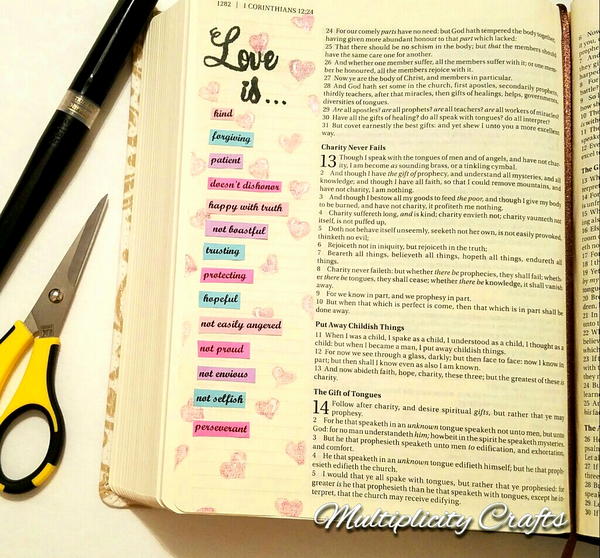 1282 | 1 CORINTHIANS 12:24
Love
is...
kind
forgiving
patient
doesn't dishonor
happy with truth
not boastful
trusting
protecting
hopeful
not easily angered
not proud
not envious
not selfish
perseverant
24 For our comely parts have no need: but God hath tempered the body together,
having given more abundant honour to that part which lacked:
25 That there should be no schism in the body; but that the members should
have the same care one for another.
26 And whether one member suffer, all the members suffer with it; or one mem-
ber be honoured, all the members rejoice with it.
27 Now ye are the body of Christ, and members in particular.
28 And God hath set some in the church, first apostles, secondarily prophets,
thirdly teachers, after that miracles, then gifts of healings, helps, governments,
diversities of tongues.
29 Are all apostles? are all prophets? are all teachers? are all workers of miracles?
30 Have all the gifts of healing? do all speak with tongues? do all interpret?
31 But covet earnestly the best gifts: and yet shew I unto you a more excellent
way.
Charity Never Fails
13 Though I speak with the tongues of men and of angels, and have not char-
ity, I am become as sounding brass, or a tinkling cymbal.
2 And though I have the gift of prophecy, and understand all mysteries, and all
knowledge; and though I have all faith, so that I could remove mountains, and
have not charity, I am nothing.
3 And though I bestow all my goods to feed the poor, and though I give my body
to be burned, and have not charity, it profiteth me nothing.
4 Charity suffereth long, and is kind; charity envieth not; charity vaunteth not
itself, is not puffed up,
5 Doth not behave itself unseemly, seeketh not her own, is not easily provoked,
thinketh no evil;
6 Rejoiceth not in iniquity, but rejoiceth in the truth;
7 Beareth all things, believeth all things, hopeth all things, endureth all
things.
8 Charity never faileth: but whether there be prophecies, they shall fail; wheth-
er there be tongues, they shall cease; whether there be knowledge, it shall vanish
away.
9 For we know in part, and we prophesy in part.
10 But when that which is perfect is come, then that which is in part shall be
done away.
Put Away Childish Things
11 When I was a child, I spake as a child, I understood as a child, I thought as a
child: but when I became a man, I put away childish things.
12 For now we see through a glass, darkly; but then face to face: now I know in
part; but then shall I know even as also I am known.
13 And now abideth faith, hope, charity, these three; but the greatest of these is
charity.
The Gift of Tongues
14 Follow after charity, and desire spiritual gifts, but rather that ye may
prophesy.
2 For he that speaketh in an unknown tongue speaketh not unto men, but unto
God: for no man understandeth him; howbeit in the spirit he speaketh mysteries.
3 But he that prophesieth speaketh unto men to edification, and exhortation,
and comfort.
4 He that speaketh in an unknown tongue edifieth himself; but he that proph-
esieth edifieth the church.
5 I would that ye all spake with tongues, but rather that ye prophesied: for
greater is he that prophesieth than he that speaketh with tongues, except he in-
terpret, that the church may receive edifying.
Multiplicity Crafts